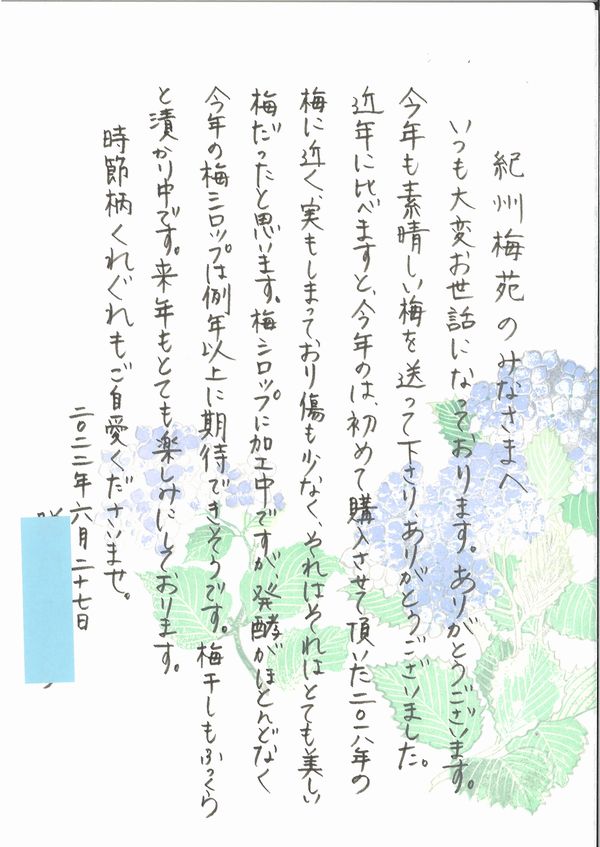 紀州梅苑のみなさまへ
いつも大変お世話になっております。ありがとうございます。
今年も素晴しい梅を送って下さり、ありがとうございました。
近年に比べますと、今年のは、初めて購入させて頂いた二〇一八年の
梅に近く、実もしまっており傷も少なく、それはそれはとても美しい
梅だったと思います。梅シロップに加工中ですが、発酵がほとんどなく
今年の梅シロップは例年以上に期待できそうです。梅干しもふっくら
と漬かり中です。来年もとても楽しみにしております。
時節柄くれぐれもご自愛くださいませ。
二〇二二年六月二十七日